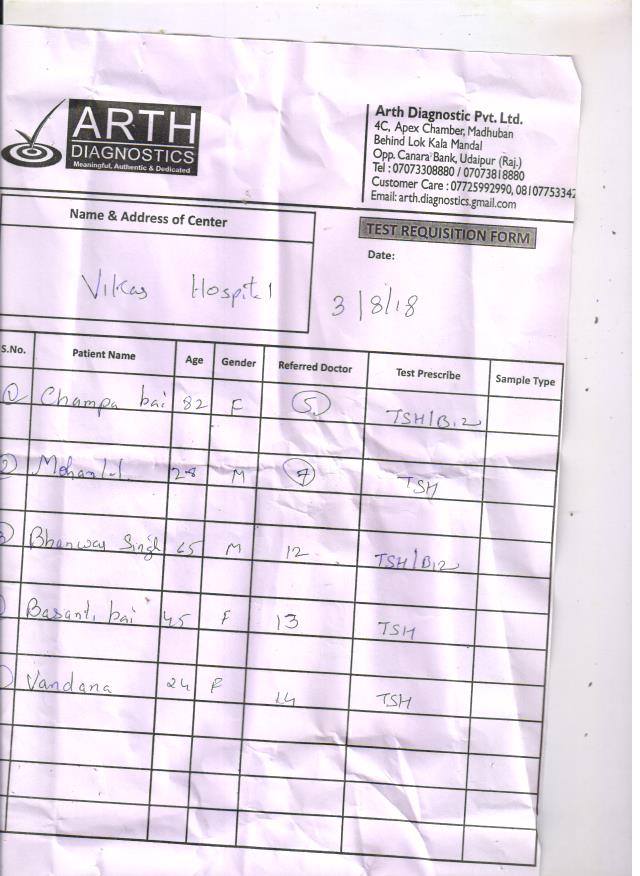 ARTH
DIAGNOSTICS
Meaningful, Authentic & Dedicated
Arth Diagnostic Pvt. Ltd.
4C, Apex Chamber, Madhuban
Behind Lok Kala Mandal
Opp. Canara Bank, Udaipur (Raj.)
Tel : 07073308880 / 07073818880
Customer Care : 07725992990, 08107753342
Email: arth.diagnostics.gmail.com
Name & Address of Center
TEST REQUISITION FORM
Date:
Vikas Hospital
3/8/18
S.No. Patient Name Age Gender Referred Doctor Test Prescribe Sample Type
1 Champa bai 82 F 5 TSH/B12
2 Mohanlal 28 M 7 TSH
Bhanwar Singh 65 M 12 TSH/B12
Basanti bai 45 F 13 TSH
Vandana 24 F 14 TSH